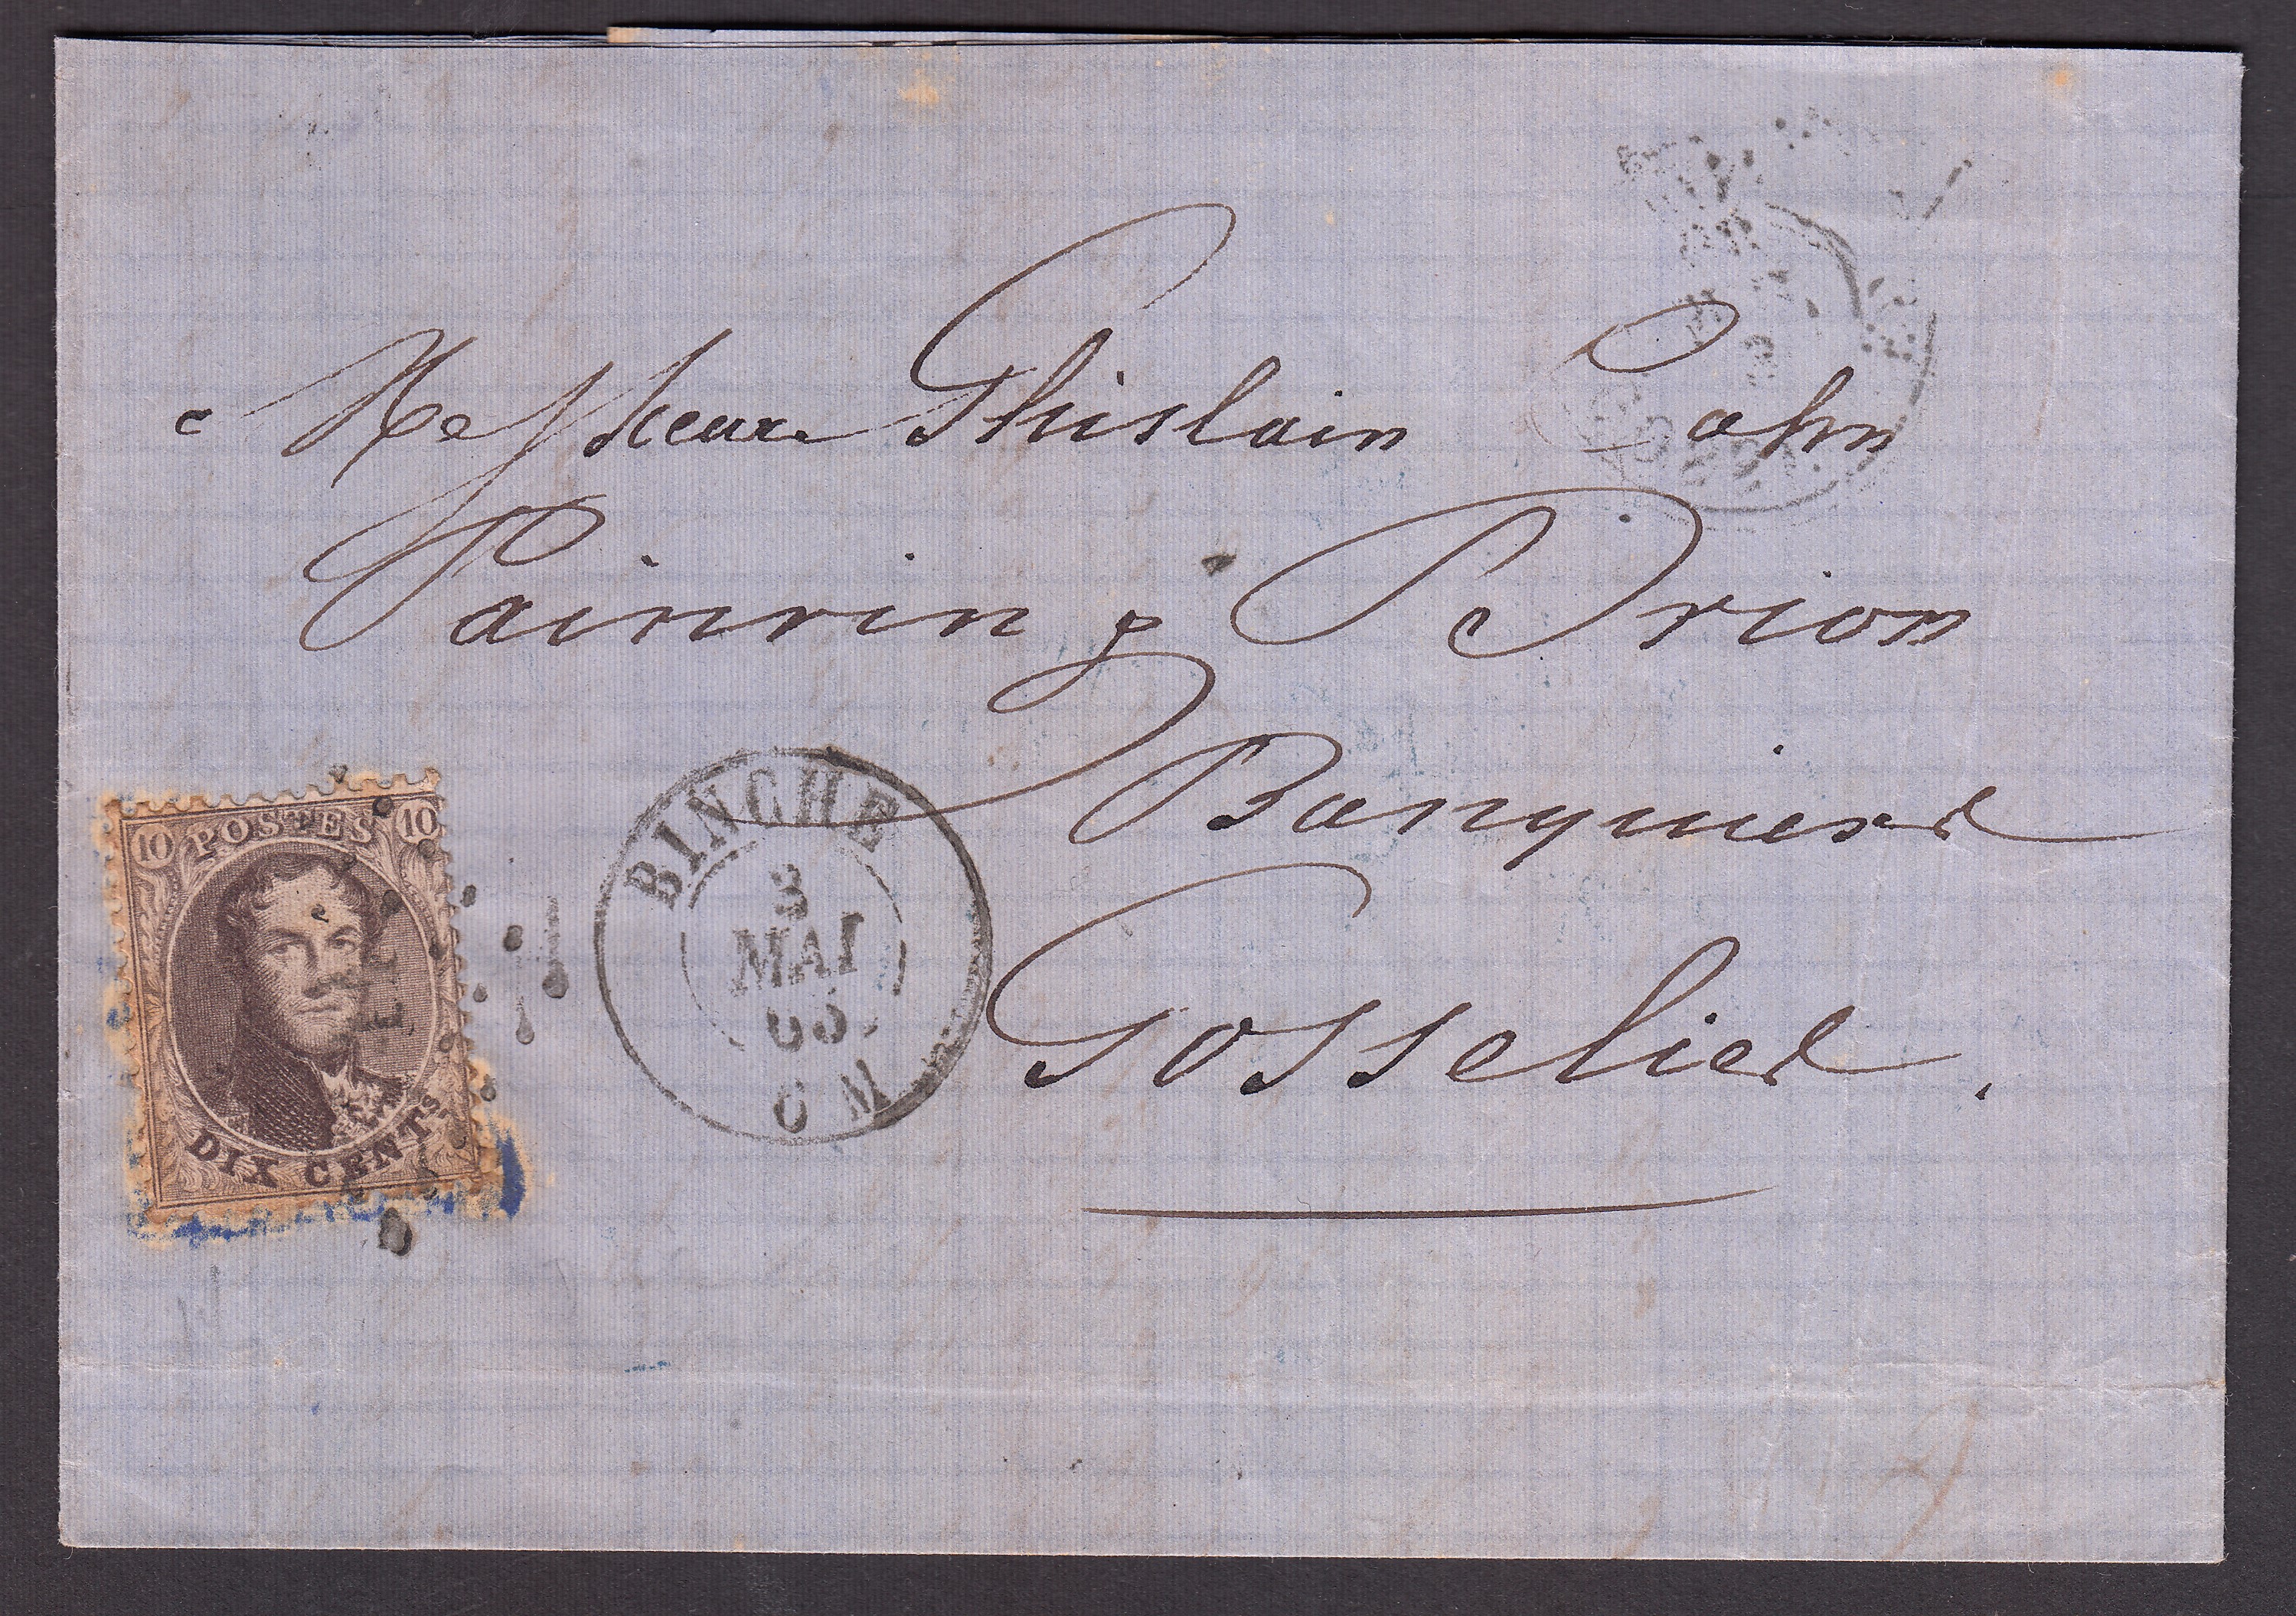 Messieurs Ghislain Cahn
Painvin & Brion
Banquiers
Gosselies.
10 POSTES 10
DIX CENTS
BINCHE
3
MAI
65
6 M